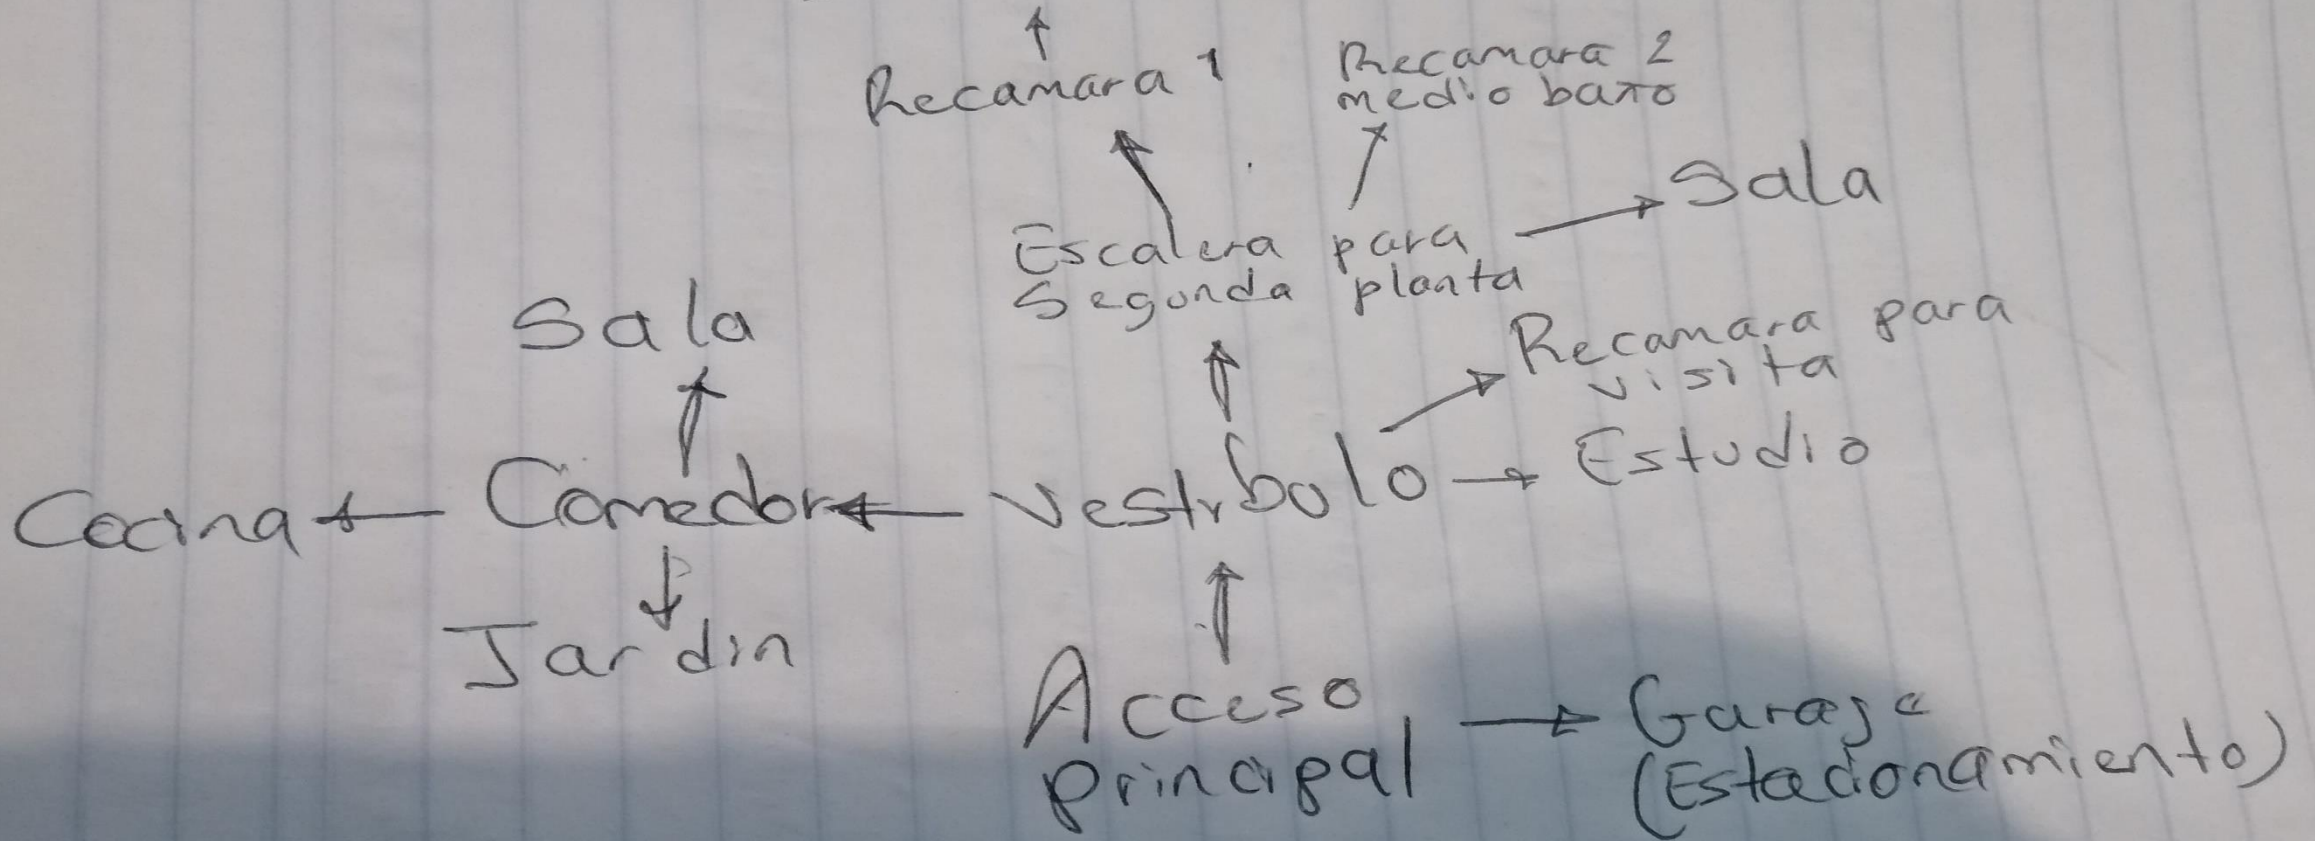 Recamara 1
Recamara 2
medio baño
Sala
Escalera para
Segunda planta
Sala
Recamara para
visita
Cocina
Comedor
Vestibulo
Estudio
Jardin
Acceso
principal
Garaje
(Estacionamiento)